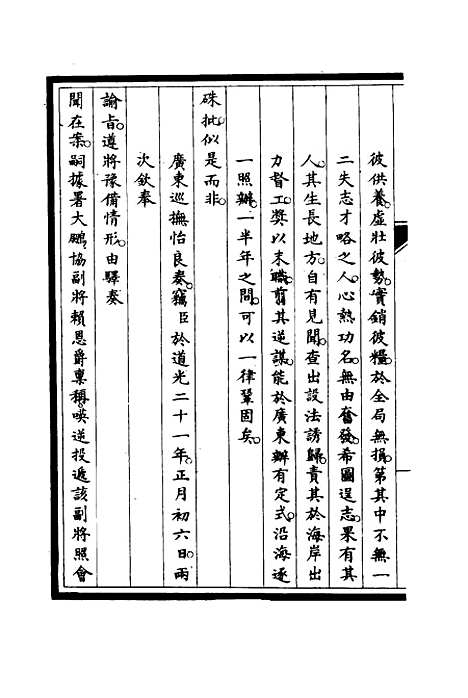 彼供養。虛壯彼勢。實銷彼糧。於全局無損。第其中不無一
二失志才略之人。心熱功名。無由奮發。希圖逞志。果有其
人。其生長地方。自有見聞。查出設法誘歸。責其於海岸出
力督工。獎以末職。翦其逆謀。能於廣東辦有定式。沿海逐
一照辦。一半年之間。可以一律鞏固矣。
硃批。似是而非。
廣東巡撫怡良奏。竊臣於道光二十一年。正月初六日。兩
次欽奉
諭旨。遵將豫備情形。由驛奏
聞在案。嗣據署大鵬協副將賴恩爵稟稱。㗆逆投遞該副將照會